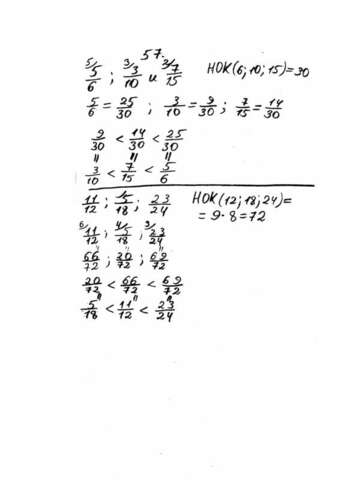 57.
5/ 5/6 ; 3/ 3/10 и 2/ 7/15 НОК(6; 10; 15)=30
5/6 = 25/30 ; 3/10 = 9/30 ; 7/15 = 14/30
9/30 < 14/30 < 25/30
" " "
3/10 < 7/15 < 5/6
11/12 ; 5/18 ; 23/24 НОК(12; 18; 24)=
6/ 11/12 ; 4/ 5/18 ; 3/ 23/24 = 9·8=72
" "
66/72 ; 20/72 ; 69/72
20/72 < 66/72 < 69/72
" " "
5/18 < 11/12 < 23/24